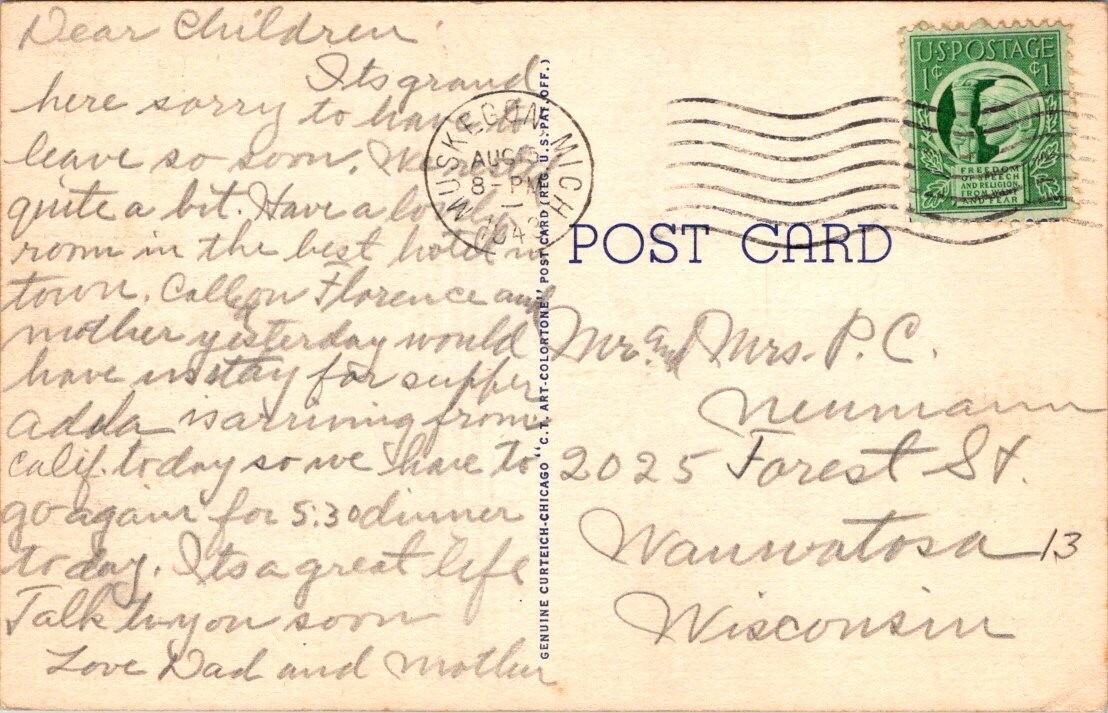 Dear Children
Its grand
here sorry to have to
leave so soon. We
quite a bit. Have a lovely
room in the best hotel in
town. Called on Florence and
mother yesterday would
have us stay for supper
Adda is arriving from
Calif. today so we have to
go again for 5:30 dinner
today. Its a great life
Talk to you soon
Love Dad and Mother
GENUINE CURTEICH-CHICAGO "C.T. ART-COLORTONE" POST CARD (REG. U.S. PAT. OFF.)
MUSKEGON MICH
AUG
8-PM
U.S. POSTAGE
1¢ ¢1
FREEDOM
OF SPEECH
AND RELIGION,
FROM WANT
AND FEAR
POST CARD
Mr. and Mrs. P. C.
Neumann
2025 Forest St.
Wauwatosa 13
Wisconsin